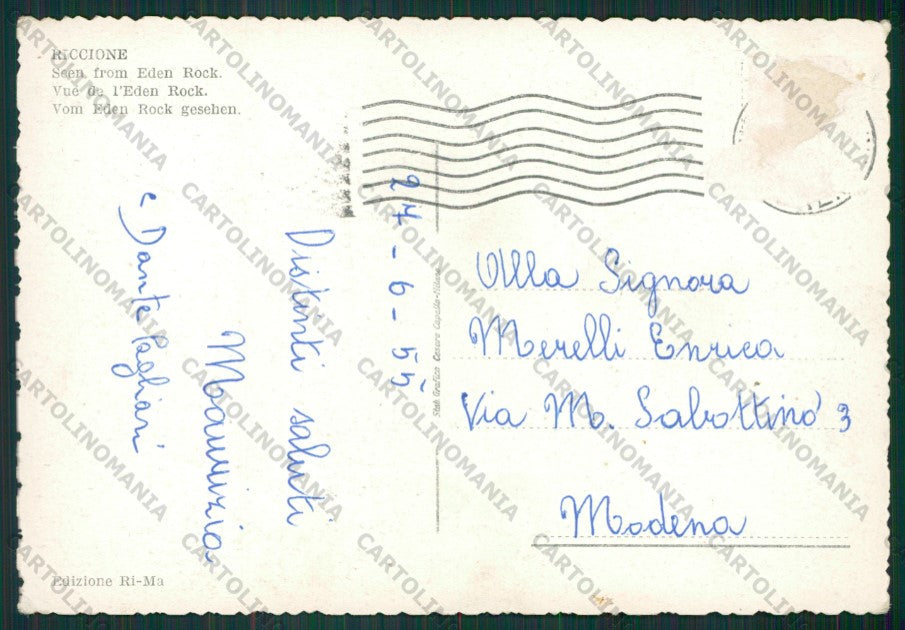 RICCIONE
Seen from Eden Rock.
Vue de l'Eden Rock.
Vom Eden Rock gesehen.
24-6-55
Distinti saluti
Maurizio
e Dante Pagliari
Alla Signora
Merelli Enrica
Via M. Sabottino 3
Modena
Stab. Grafico Cesare Capello-Milano
Edizione Ri-Ma
CARTOLINOMANIA